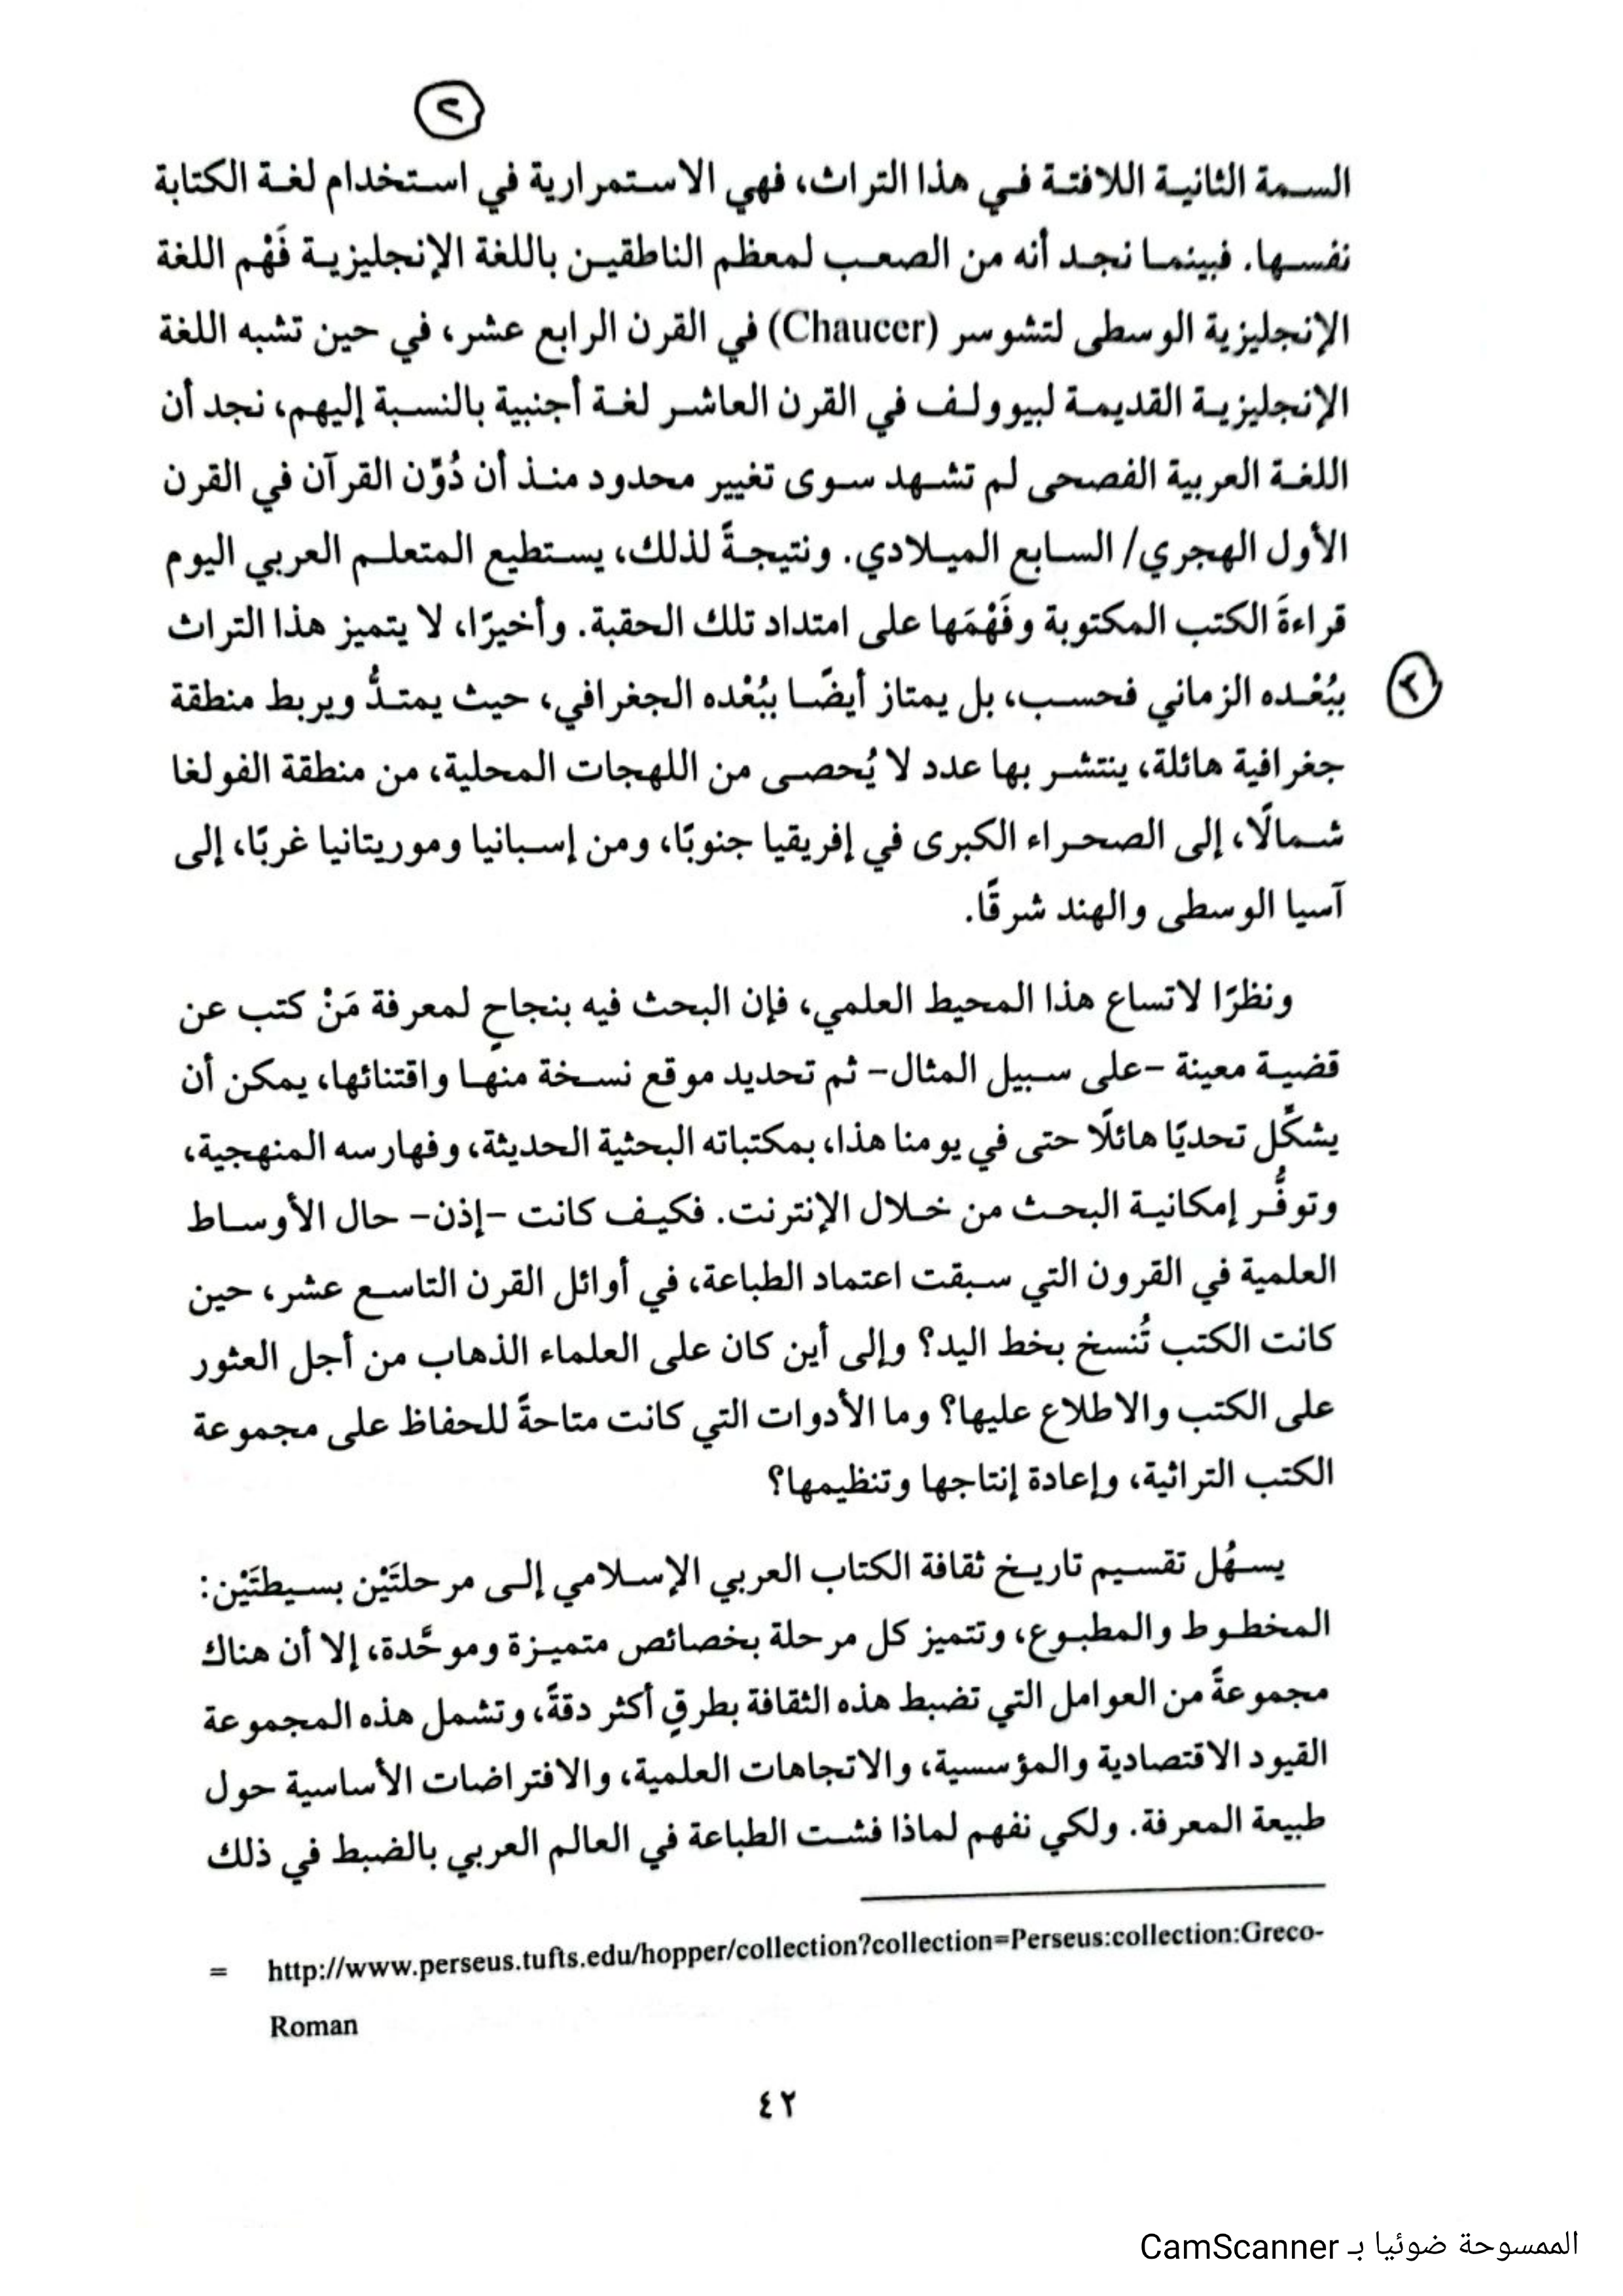 ٢
السمة الثانية اللافتة في هذا التراث، فهي الاستمرارية في استخدام لغة الكتابة
نفسها. فبينما نجد أنه من الصعب لمعظم الناطقين باللغة الإنجليزية فَهْم اللغة
الإنجليزية الوسطى لتشوسر (Chaucer) في القرن الرابع عشر، في حين تشبه اللغة
الإنجليزية القديمة لبيوولف في القرن العاشر لغة أجنبية بالنسبة إليهم، نجد أن
اللغة العربية الفصحى لم تشهد سوى تغيير محدود منذ أن دُوِّن القرآن في القرن
الأول الهجري/ السابع الميلادي. ونتيجةً لذلك، يستطيع المتعلم العربي اليوم
قراءةَ الكتب المكتوبة وفَهْمَها على امتداد تلك الحقبة. وأخيرًا، لا يتميز هذا التراث
٣ ببُعْده الزماني فحسب، بل يمتاز أيضًا ببُعْده الجغرافي، حيث يمتدُّ ويربط منطقة
جغرافية هائلة، ينتشر بها عدد لا يُحصى من اللهجات المحلية، من منطقة الفولغا
شمالًا، إلى الصحراء الكبرى في إفريقيا جنوبًا، ومن إسبانيا وموريتانيا غربًا، إلى
آسيا الوسطى والهند شرقًا.
ونظرًا لاتساع هذا المحيط العلمي، فإن البحث فيه بنجاحٍ لمعرفة مَنْ كتب عن
قضية معينة -على سبيل المثال- ثم تحديد موقع نسخة منها واقتنائها، يمكن أن
يشكِّل تحديًا هائلًا حتى في يومنا هذا، بمكتباته البحثية الحديثة، وفهارسه المنهجية،
وتوفُّر إمكانية البحث من خلال الإنترنت. فكيف كانت -إذن- حال الأوساط
العلمية في القرون التي سبقت اعتماد الطباعة، في أوائل القرن التاسع عشر، حين
كانت الكتب تُنسخ بخط اليد؟ وإلى أين كان على العلماء الذهاب من أجل العثور
على الكتب والاطلاع عليها؟ وما الأدوات التي كانت متاحةً للحفاظ على مجموعة
الكتب التراثية، وإعادة إنتاجها وتنظيمها؟
يسهُل تقسيم تاريخ ثقافة الكتاب العربي الإسلامي إلى مرحلتَيْن بسيطتَيْن:
المخطوط والمطبوع، وتتميز كل مرحلة بخصائص متميزة وموحَّدة، إلا أن هناك
مجموعةً من العوامل التي تضبط هذه الثقافة بطرقٍ أكثر دقةً، وتشمل هذه المجموعة
القيود الاقتصادية والمؤسسية، والاتجاهات العلمية، والافتراضات الأساسية حول
طبيعة المعرفة. ولكي نفهم لماذا فشت الطباعة في العالم العربي بالضبط في ذلك
= http://www.perseus.tufts.edu/hopper/collection?collection=Perseus:collection:Greco-
Roman
٤٢
الممسوحة ضوئيا بـ CamScanner